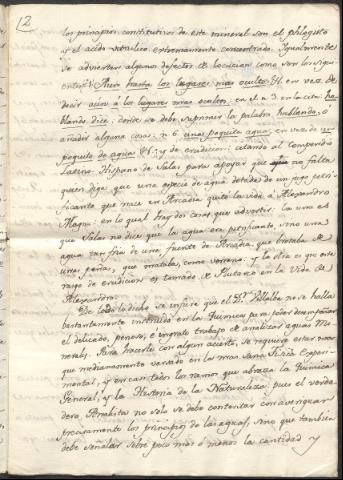 12
los principales constitutivos de este mineral son el phlogisto
y el acido vitriolico extremamente concentrado. Igualmente
se advierten algunos defectos de locucion como son los sigui-
entes: Aun hasta los lugares mas ocultos en vez de
decir aún à los lugares mas ocultos: en el n. 3. en la cita ha-
blando dice; donde se debe suprimir la palabra hablando, ó
añadir alguna cosa: n. 6. una poquita agua, en vez de un
poquito de agua &c. y de erudicion; citando al Compendio
Latino-Hispano de Salas para apoyar que no falta
quien diga que una especie de agua dotada de un jugo petri-
ficante que nace en Arcadia quitó la vida à Alexandro
Magno: en lo qual hay dos cosas que advertir: la una es
que Salas no dice que la agua era petrificante, sino una
agua tan fria de una fuente de Arcadia, que brotaba de
unas peñas, que mataba, como veneno: y la otra es que este
rasgo de erudicion es tomado de Plutarco en la Vida de
Alexandro.
De todo lo dicho se infiere que el Dr. Villalba no se halla
bastantemente instruido en la Quimica para poder desempeñar
el delicado, penoso, é ingrato trabajo de analizar aguas Mi-
nerales. Para hacerlo con algun acierto, se requiere estar mas
que medianamente versado en la mas sana Fisica Experi-
mental, y en casi todos los ramos que abraza la Quimica
General, y la Historia de la Naturaleza: pues el verda-
dero Analista no solo se debe contentar con averiguar
precisamente los principios de las aguas, sino que tambien
debe señalar sobre poco mas ó menos la cantidad y